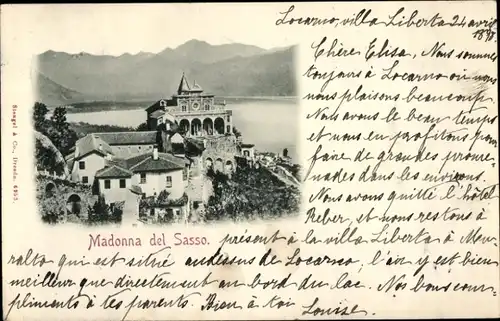 Locarno, villa Liberta 24 avril
1898
Chère Elisa. Nous sommes
toujours à Locarno où nous
nous plaisons beaucoup.
Nous avons le beau temps
et nous en profitons pour
faire de grandes prome-
nades dans les environs.
Nous avons quitté l'hôtel
Reber, et nous restons à
présent à la villa Liberta à Mu-
ralto qui est situé au dessus de Locarno, l'air y est bien
meilleur que directement au bord du lac. Nos bons com-
pliments à tes parents. Bien à toi Louise.
Madonna del Sasso.
Stengel & Co., Dresda. 4953.